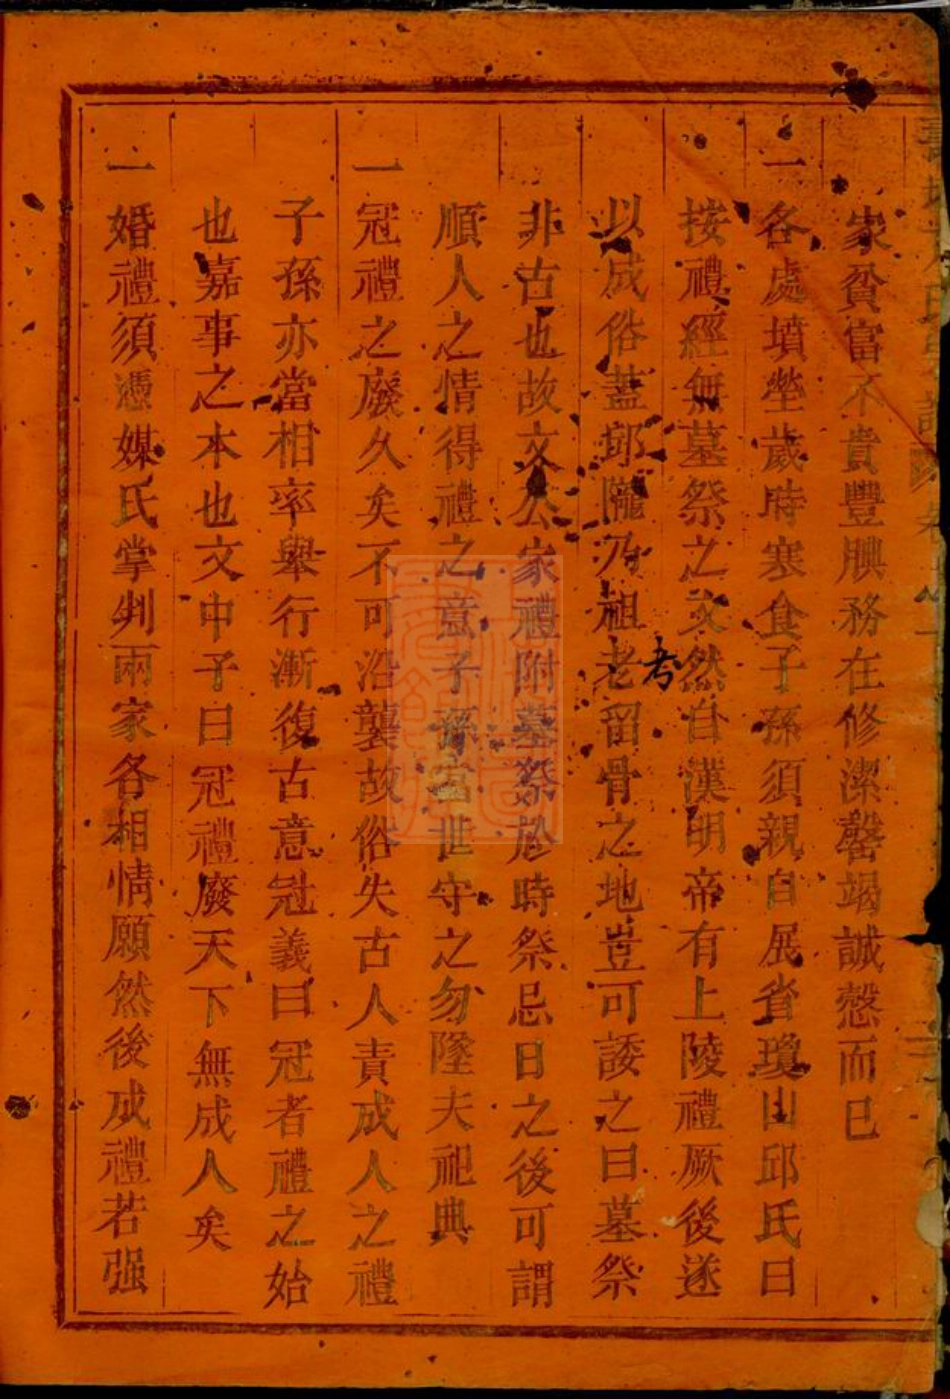 家貧富不貴豐腆務在修潔罄竭誠慤而已
一各處墳塋歲時寒食子孫須親自展省瓊山邱氏曰
按禮經無墓祭之文然自漢明帝有上陵禮厥後遂
以成俗蓋邱隴乃祖老留骨之地豈可諉之曰墓祭
考
非古也故文公家禮附墓祭於時祭忌日之後可謂
順人之情得禮之意子孫宜世守之勿墜夫祀典
一冠禮之廢久矣不可沿襲故俗失古人責成人之禮
子孫亦當相率舉行漸復古意冠義曰冠者禮之始
也嘉事之本也文中子曰冠禮廢天下無成人矣
一婚禮須憑媒氏掌判兩家各相情願然後成禮若强